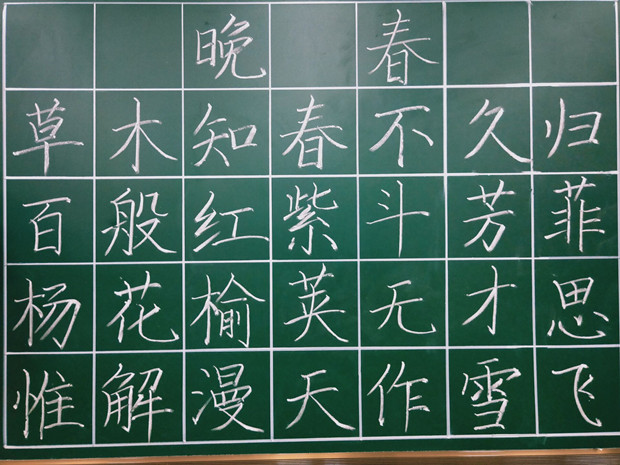 晚春
草木知春不久归
百般红紫斗芳菲
杨花榆荚无才思
惟解漫天作雪飞